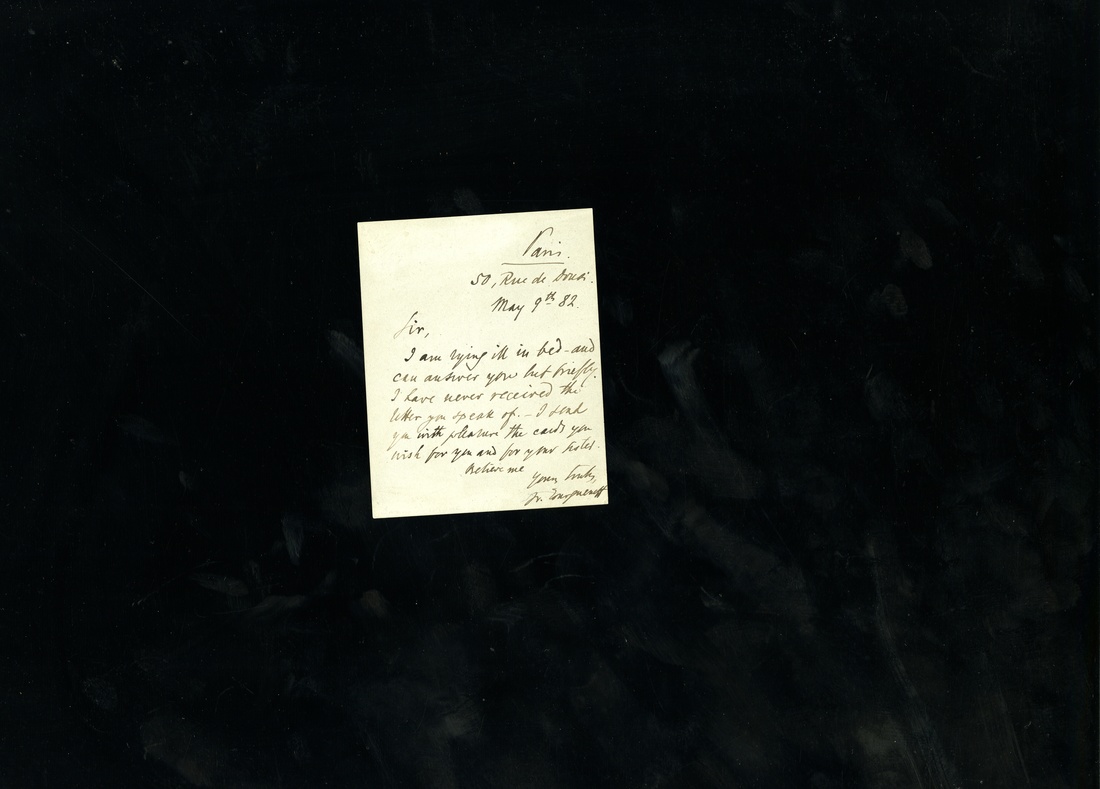 Paris.
50, Rue de Douai.
May 9th 82.
Sir,
I am lying ill in bed - and
can answer you but briefly.
I have never received the
letter you speak of. - I send
you with pleasure the cards you
wish for you and for your sister.
Believe me
Yours truly,
Iv. Tourguéneff